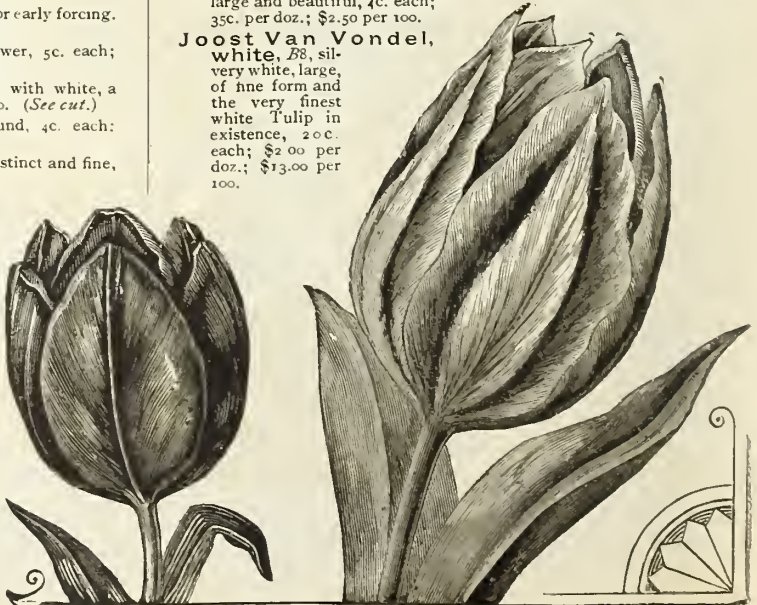 or early forcing.
wer, 5c. each;
with white, a
o. (See cut.)
und, 4c. each:
stinct and fine,
large and beautiful, 4c. each;
35c. per doz.; $2.50 per 100.
Joost Van Vondel,
white, B8, sil-
very white, large,
of fine form and
the very finest
white Tulip in
existence, 20c.
each; $2 00 per
doz.; $13.00 per
100.